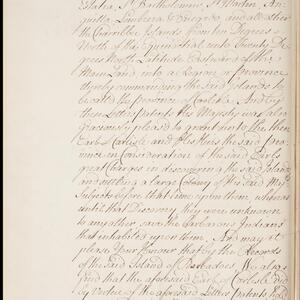 Estatia, St Bartholomew, St Martin, An-
guilla, Sombrera & Enegada and all other
the Charribbee Islands from ten Degrees
North of the Equinoctial unto twenty De-
grees North Latitude Eastward of the
Main Land into a Region or Province
thereby annexing the said Islands to
be call'd the Province of Carliola. And by
these Letters Patents His Majesty was also
Graciously pleased to grant unto the then
Earl of Carlisle and his Heirs the said Pro-
vince in Consideration of the said Earl's
great Charges in discovering the said Islands
and settling a large Colony of the said Maj
Subjects before that time upon them, whereas
until that Discovery they were unknown
to any other save the barbarous Indians
that inhabited upon them. And may it
please Your Honour that by the Records
of the said Island of Barbadoes We also
find that the aforesaid Earl of Carlisle did
by Virtue of the aforesaid Letters Patents hold